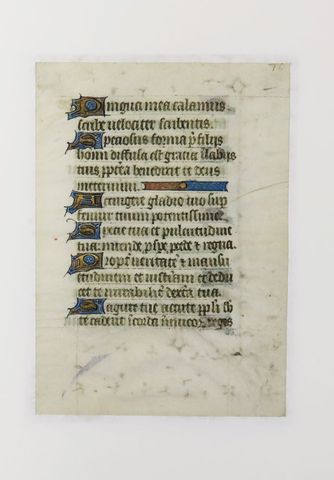 76
Lingua mea calamus
scribe velociter scribentis.
Speciosus forma p̄ filijs
homī diffusa est gratia ī labijs
tuis pp̄tea benedixit te deus
in eternum.
Accingere gladio tuo sup
femur tuum potentissime
Specie tua et pulcritudine
tua intende p̄spe p̄cede et regna.
Propt̄ veritatē et mansu
etudinem et iustiam et dedu
cet te mirabilit̄ dext̄a tua.
Sagitte tue acute pp̄li sb̄
te cadent ī corda īimicoꝝ regis